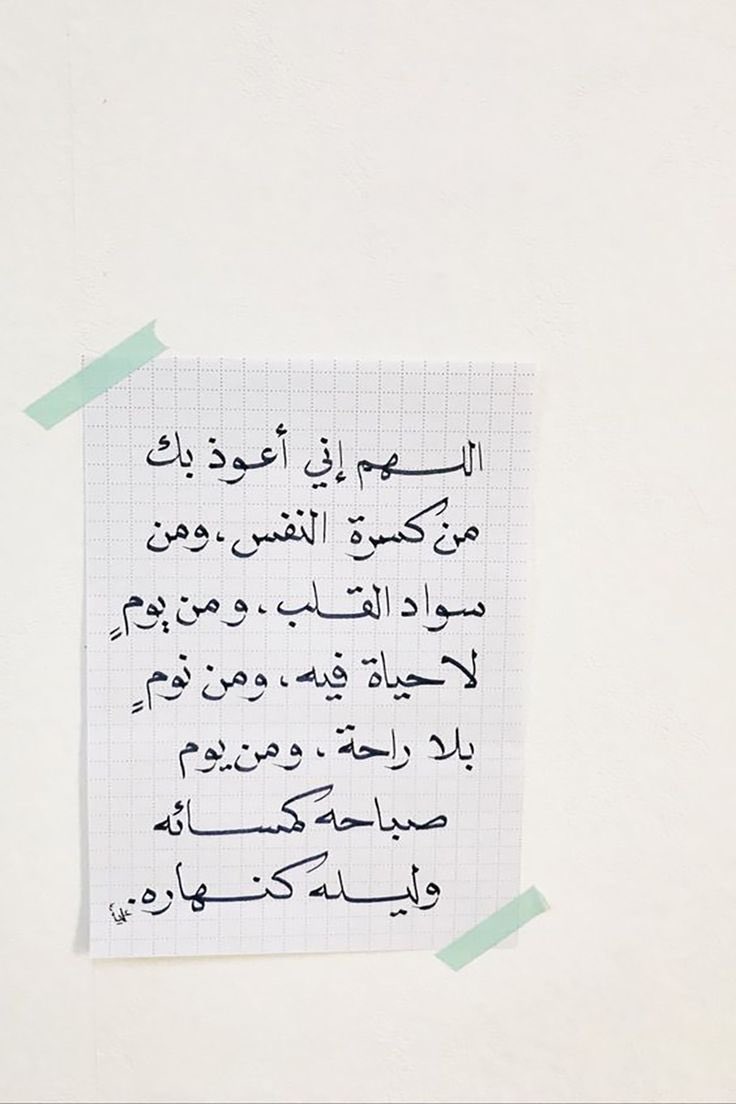 اللهم إني أعوذ بك
من كسرة النفس، ومن
سواد القلب، ومن يومٍ
لا حياة فيه، ومن نومٍ
بلا راحة، ومن يوم
صباحه كمسائه
وليله كنهاره.